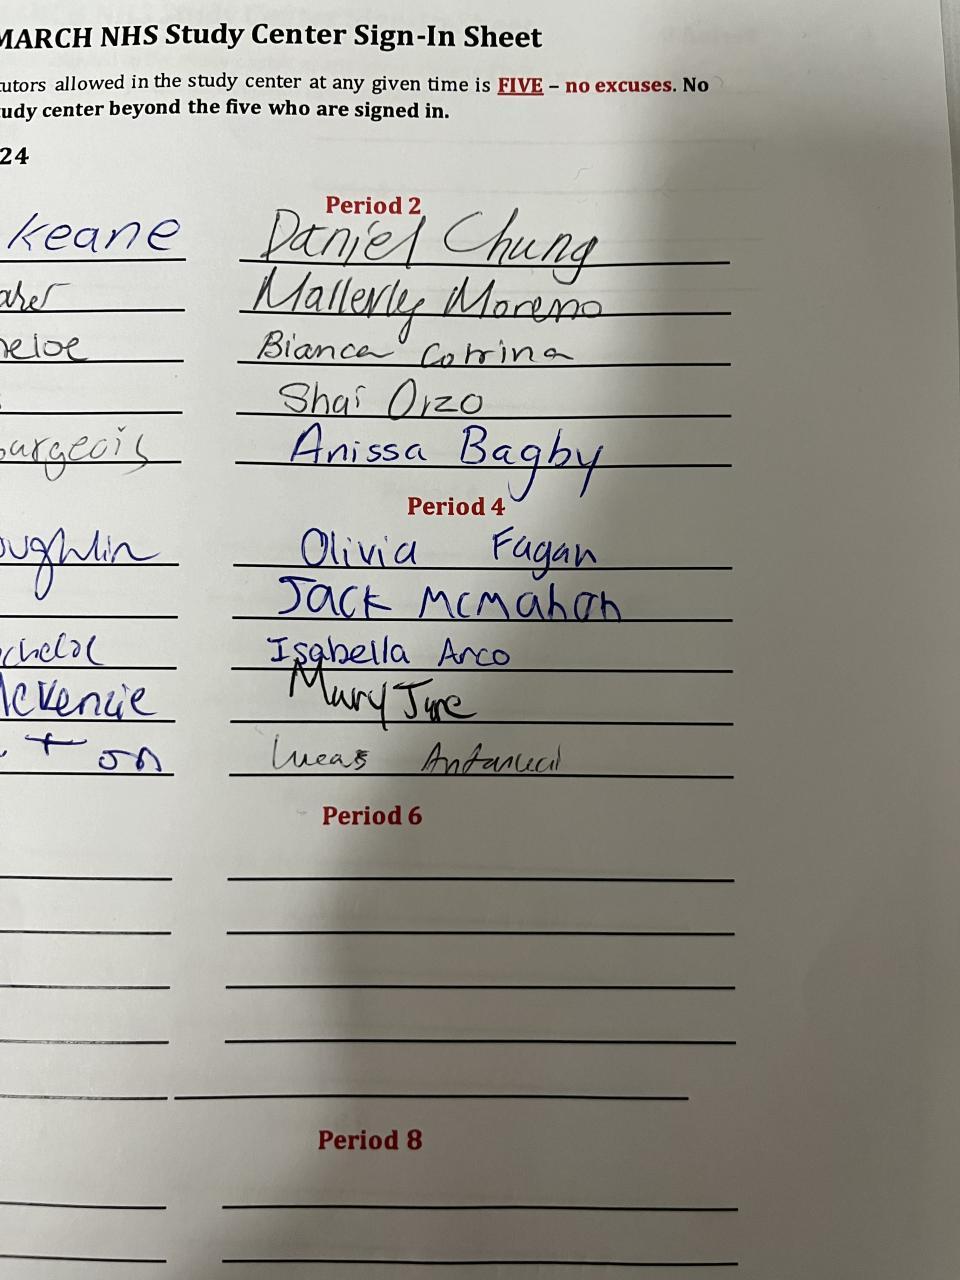 MARCH NHS Study Center Sign-In Sheet
utors allowed in the study center at any given time is FIVE – no excuses. No
udy center beyond the five who are signed in.
24
Period 2
Keane Daniel Chung
Mallerly Moreno
heloe Bianca Cotrina
Shai Orzo
ourgeois Anissa Bagby
Period 4
oughlin Olivia Fagan
Jack McMahon
Isabella Arco
McKenzie Mary Tyre
Lucas
Period 6
Period 8